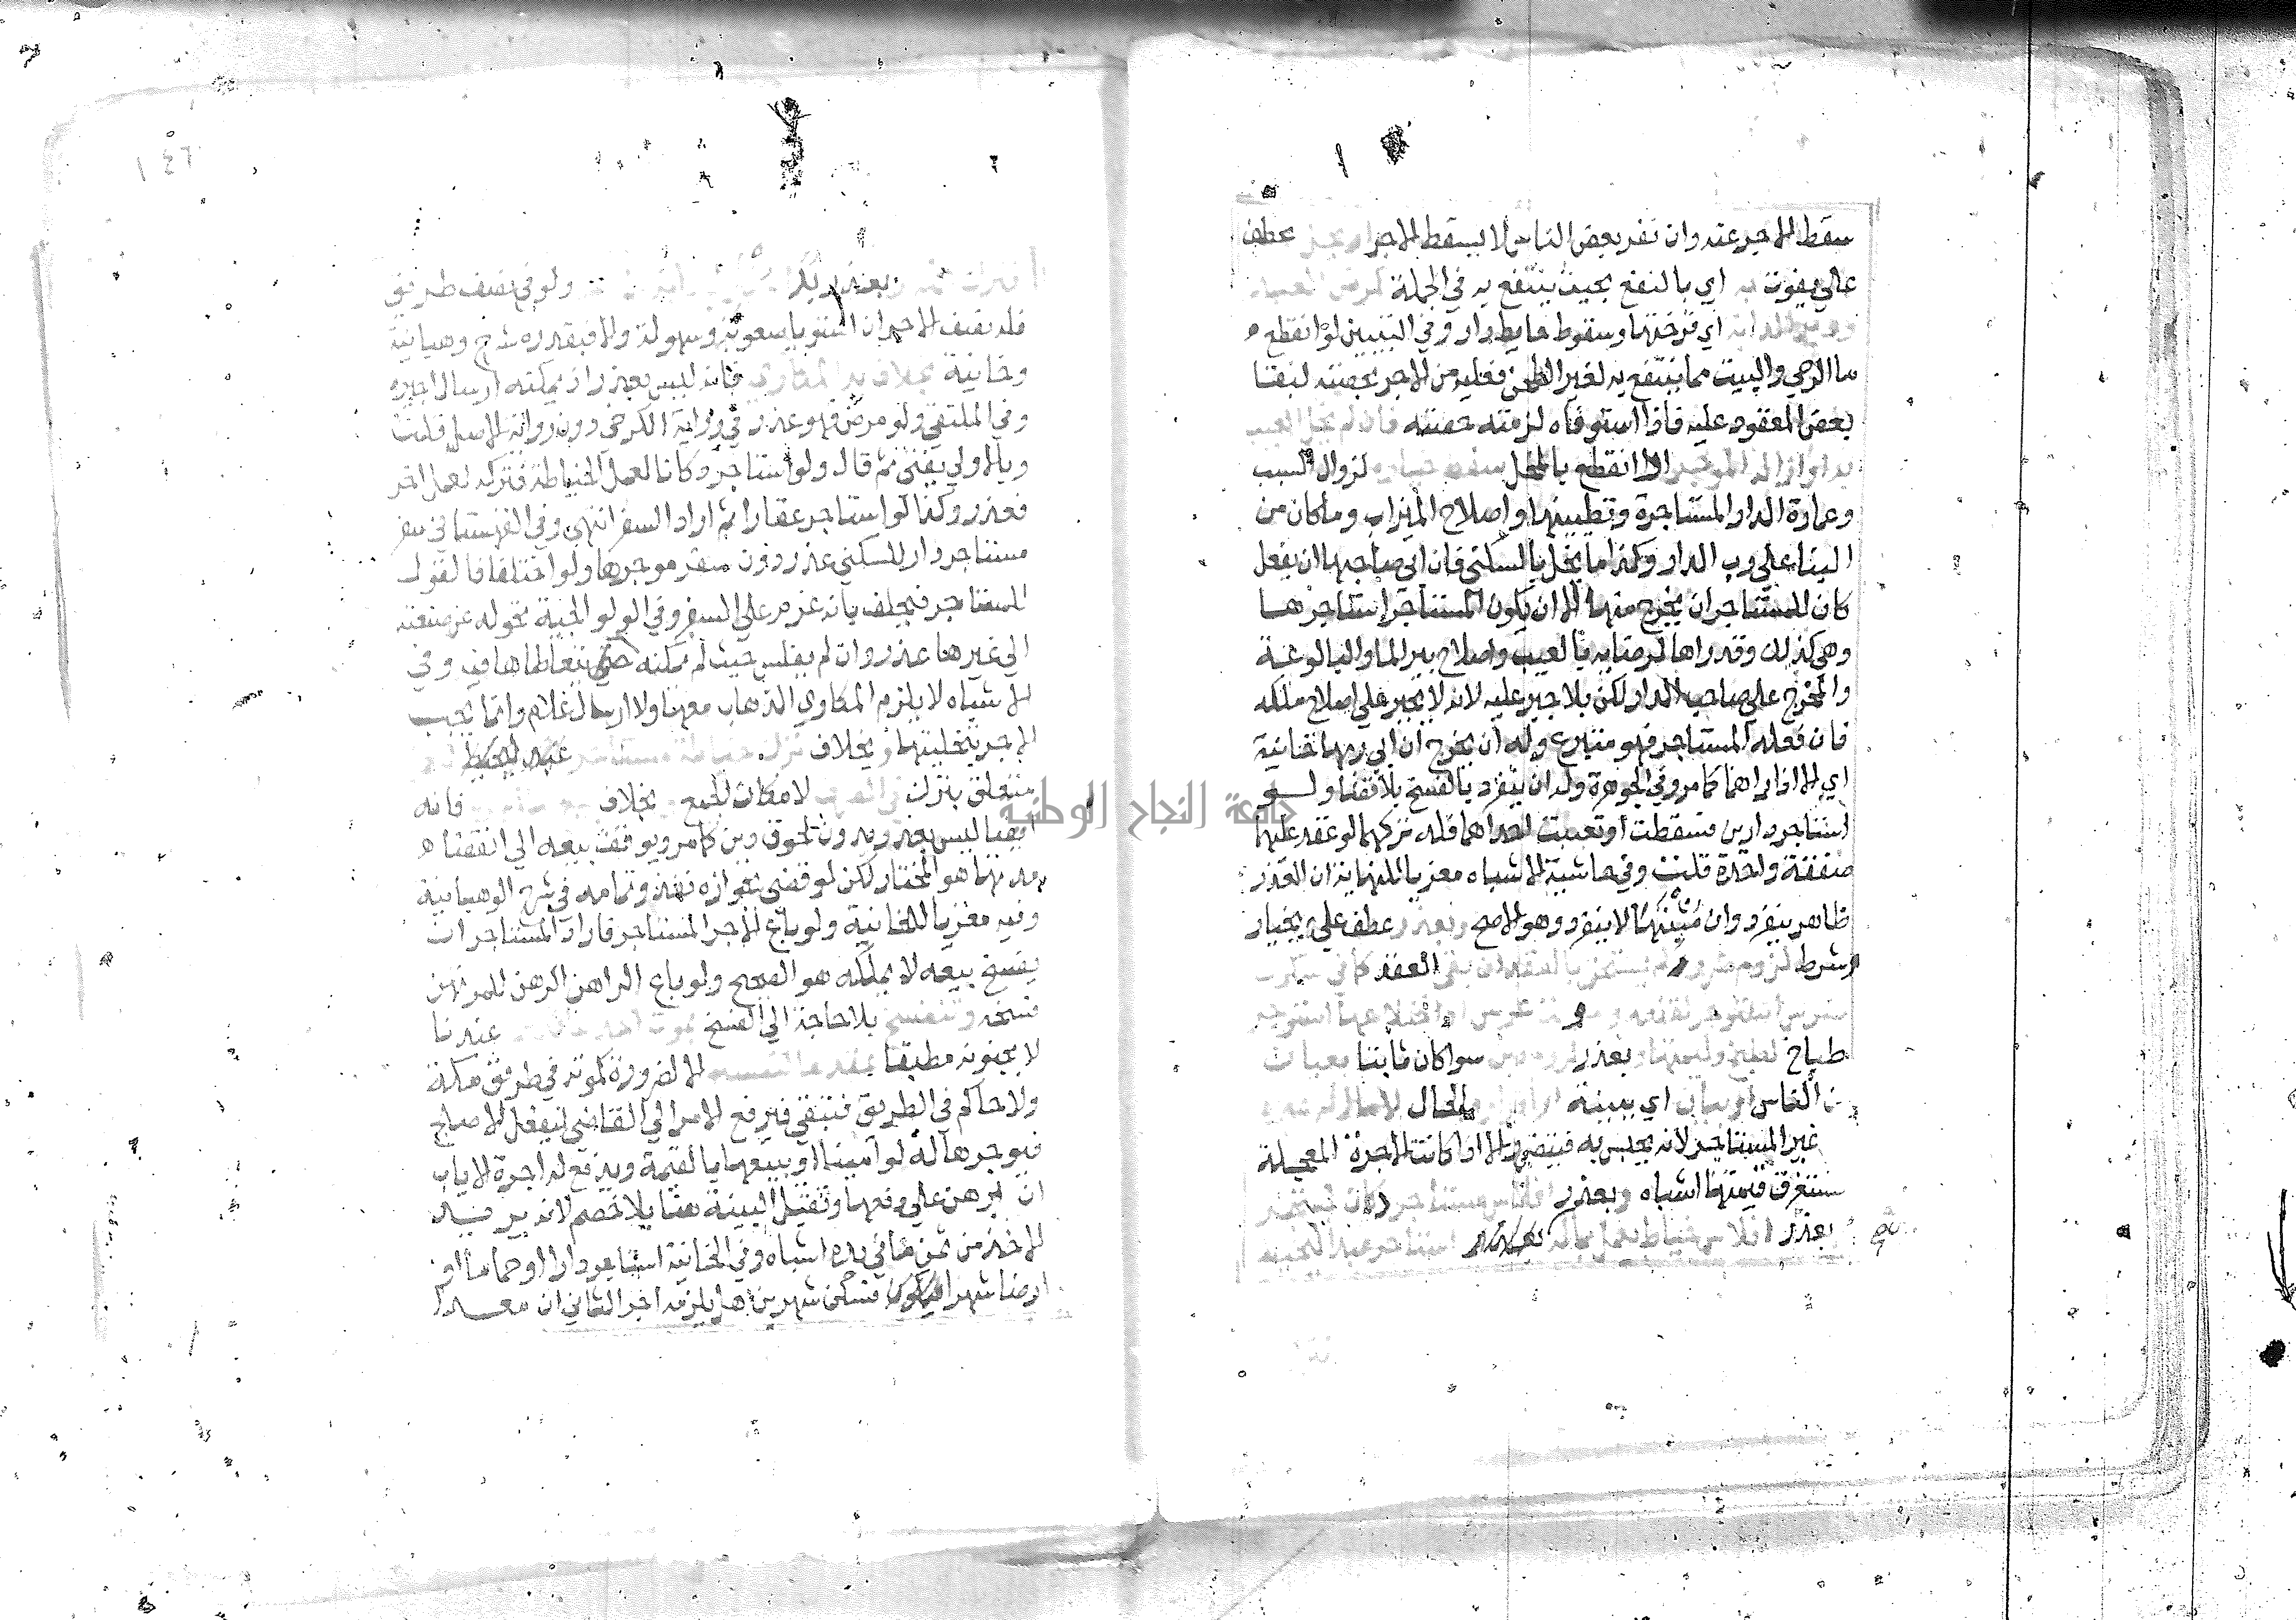 سقط الاجر عنه وان نفر بعض الناس لا يسقط الاجر او يخل عطف
علي يفوت به اي بالنفع بحيث ينتفع به في الجملة كمرض العبد
ودبر الدابة اي قرحتها وسقوط حايط دار وفي التبيين لو انقطع
ما الرحي والبيت مما ينتفع به لغير الطحن فعليه من الاجر بحصته لبقا
بعض المعقود عليه فاذا استوفاه لزمته حصته فان لم يخل العيب
به او ازاله الموجر او انتفع بالمخل سقط خياره لزوال السبب
وعمارة الدار المستاجرة وتطيينها واصلاح الميزاب وما كان من
البنا علي رب الدار وكذا ما يخل بالسكني فان ابي صاحبها ان يفعل
كان للمستاجر ان يخرج منها الا ان يكون المستاجر استاجرها
وهي كذلك وقد راها لرضايه بالعيب واصلاح بير الما والبالوعة
والمخرج علي صاحب الدار لكن بلا جبر عليه لانه لا يجبر علي اصلاح ملكه
فان فعله المستاجر فهو متبرع وله ان يخرج ان ابي ربها خانية
اي الا اذا راها كما مر وفي الجوهرة وله ان ينفرد بالفسخ بلا قضا ولو
استاجر دارين فسقطت او تعيبت احداهما فله تركهما لو عقد عليهما
صفقة واحدة قلت وفي حاشية الاشباه معزيا للنهاية ان العذر
ظاهر ينفرد وان مشتبها لا ينفرد وهو الاصح وبعذر عطف علي بخيار
شرط لزوم ضرر لم يستحق بالعقد ان بقي العقد كما في سكون
ضرس استوجر لقلعه وموت عرس او اختلاعها استوجر
طباخ لطبخ وليمتها وبعذر لزوم دين سوا كان ثابتا بعيان
من الناس او بيان اي ببينة او اقرار والحال لا مال له غيره
غير المستاجر لانه يحبس به فيتضرر الا اذا كانت الاجرة المعجلة
تستغرق قيمتها اشباه وبعذر افلاس مستاجر دكان ليتجر
بعذر افلاس خياط يعمل بماله استاجر عبدا ليخيط
وبعذر بدا ولو في نصف طريق
فله نصف الاجر ان استويا صعوبة وسهولة والا فبقدره شرح وهبانية
وخانية بخلاف بدا المكاري فانه ليس بعذر اذ يمكنه ارسال اجيره
وفي الملتقي ولو مرض فهو عذر في رواية الكرخي دون رواية الاصل قلت
وبالاولي يفتي ثم قال ولو استاجر دكانا لعمل الخياطة فتركه لعمل اخر
فعذر وكذا لو استاجر عقارا ثم اراد السفر انتهي وفي القهستاني سفر
مستاجر دار للسكني عذر دون سفر موجرها ولو اختلفا فالقول
للمستاجر فيحلف بانه عزم علي السفر وفي الولوالجية تحوله عن صنعته
الي غيرها عذر وان لم يفلس حيث لم يمكنه ان يتعاطاها فيه وفي
الاشباه لا يلزم المكاري الذهاب معها ولا ارسال غلام وانما يجب
الاجر بتخليتها وبخلاف ترك خياطة مستاجر عبد ليخيط
متعلق بترك لامكان الجمع بخلاف فانه
ايضا ليس بعذر بدون لحوق دين كما مر ويوقف بيعه الي انقضا
مدتها هو المختار لكن لو قضي بجوازه نفذ وتمامه في شرح الوهبانية
وفيه معزيا للخانية ولو باع الاجر المستاجر فاراد المستاجر ان
يفسخ بيعه لا يملكه هو الصحيح ولو باع الراهن الرهن للمرتهن
فسخه وتنفسخ بلا حاجة الي الفسخ بموت احد عندنا
لا بجنونه مطبقا عقدها لنفسه الا لضرورة كموته في طريق مكة
ولا حاكم في الطريق فتبقي فيرفع الامر الي القاضي ليفعل الاصلح
فيوجرها له لو امينا او يبيعها بالقيمة ويدفع له اجرة الاياب
ان برهن علي دفعها وتقبل البينة هنا بلا خصم لانه يريد
الاخذ من ثمن ما في يده اشباه وفي الخانية استاجر دارا او حماما او
ارضا شهرا فسكن شهرين هل يلزمه اجر الثاني ان معدا
جامعة النجاح الوطنية